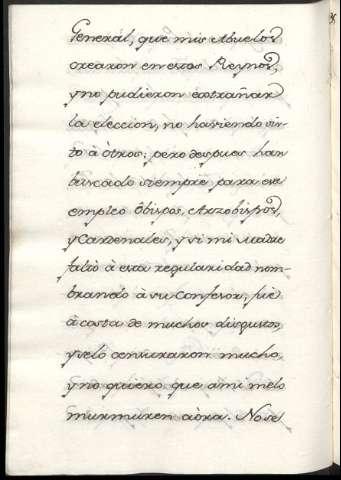 General, que mis Abuelos
crearon en estos Reynos,
y no pudieron extrañar
la eleccion, no haviendo vis-
to à òtros; pero despues han
buscado siempre para ese
empleo Obispos, Arzobispos,
y Cardenales, y si mi Madre
faltò à esta regularidad nom-
brando à su Confesor, fuè
à costa de muchos disgustos,
y se lo censuraron mucho,
y no quiero que à mi me lo
murmuren aòra. No se